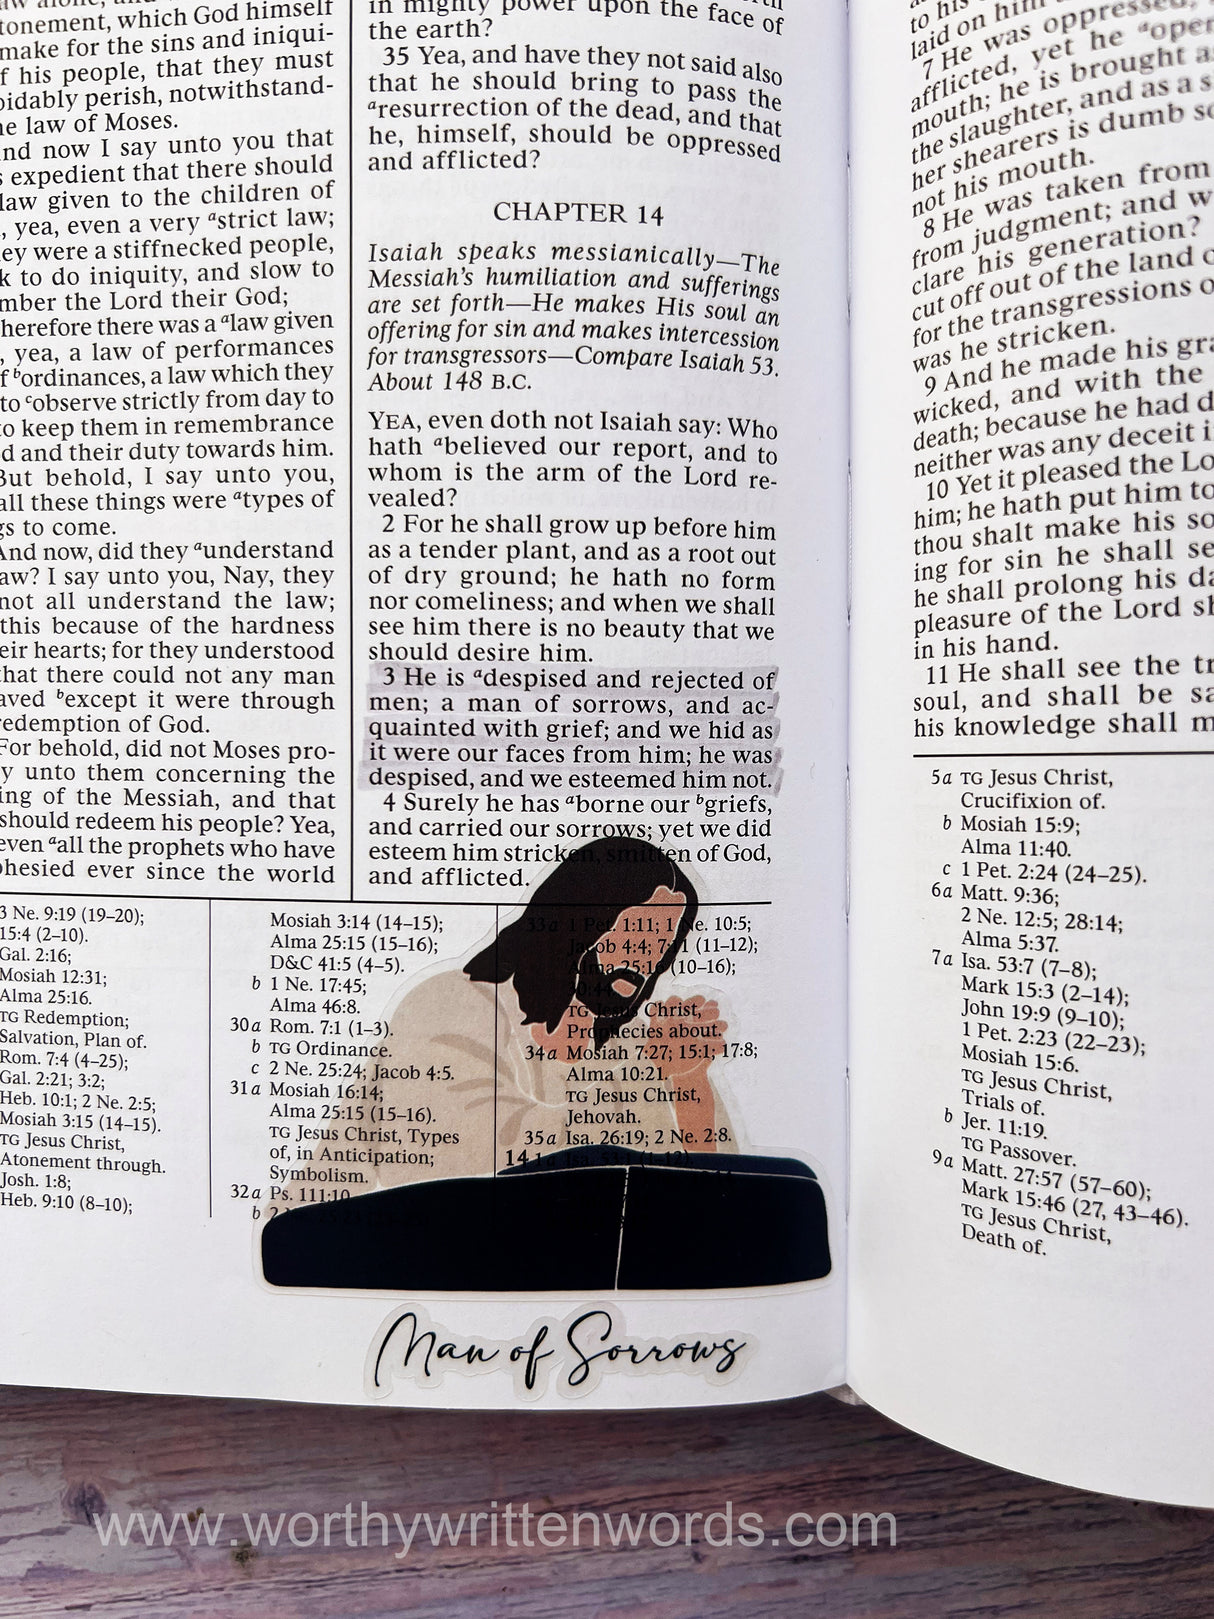 tonement, which God himself
make for the sins and iniqui-
f his people, that they must
oidably perish, notwithstand-
he law of Moses.
nd now I say unto you that
s expedient that there should
law given to the children of
, yea, even a very ᵃstrict law;
ey were a stiffnecked people,
k to do iniquity, and slow to
mber the Lord their God;
herefore there was a ᵃlaw given
, yea, a law of performances
f ᵇordinances, a law which they
to ᶜobserve strictly from day to
to keep them in remembrance
d and their duty towards him.
But behold, I say unto you,
all these things were ᵃtypes of
gs to come.
And now, did they ᵃunderstand
aw? I say unto you, Nay, they
not all understand the law;
this because of the hardness
eir hearts; for they understood
that there could not any man
aved ᵇexcept it were through
redemption of God.
For behold, did not Moses pro-
y unto them concerning the
ing of the Messiah, and that
should redeem his people? Yea,
even ᵃall the prophets who have
phesied ever since the world
in mighty power upon the face of
the earth?
35 Yea, and have they not said also
that he should bring to pass the
ᵃresurrection of the dead, and that
he, himself, should be oppressed
and afflicted?
CHAPTER 14
Isaiah speaks messianically—The
Messiah's humiliation and sufferings
are set forth—He makes His soul an
offering for sin and makes intercession
for transgressors—Compare Isaiah 53.
About 148 B.C.
YEA, even doth not Isaiah say: Who
hath ᵃbelieved our report, and to
whom is the arm of the Lord re-
vealed?
2 For he shall grow up before him
as a tender plant, and as a root out
of dry ground; he hath no form
nor comeliness; and when we shall
see him there is no beauty that we
should desire him.
3 He is ᵃdespised and rejected of
men; a man of sorrows, and ac-
quainted with grief; and we hid as
it were our faces from him; he was
despised, and we esteemed him not.
4 Surely he has ᵃborne our ᵇgriefs,
and carried our sorrows; yet we did
esteem him stricken, smitten of God,
and afflicted.
3 Ne. 9:19 (19–20);
15:4 (2–10).
Gal. 2:16;
Mosiah 12:31;
Alma 25:16.
TG Redemption;
Salvation, Plan of.
Rom. 7:4 (4–25);
Gal. 2:21; 3:2;
Heb. 10:1; 2 Ne. 2:5;
Mosiah 3:15 (14–15).
TG Jesus Christ,
Atonement through.
Josh. 1:8;
Heb. 9:10 (8–10);
Mosiah 3:14 (14–15);
Alma 25:15 (15–16);
D&C 41:5 (4–5).
b 1 Ne. 17:45;
Alma 46:8.
30a Rom. 7:1 (1–3).
b TG Ordinance.
c 2 Ne. 25:24; Jacob 4:5.
31a Mosiah 16:14;
Alma 25:15 (15–16).
TG Jesus Christ, Types
of, in Anticipation;
Symbolism.
32a Ps. 111:10
b 2
33a 1 Pet. 1:11; 1 Ne. 10:5;
Jacob 4:4; 7:11 (11–12);
Alma 25:16 (10–16);
30:44.
TG Jesus Christ,
Prophecies about.
34a Mosiah 7:27; 15:1; 17:8;
Alma 10:21.
TG Jesus Christ,
Jehovah.
35a Isa. 26:19; 2 Ne. 2:8.
14 1a Isa. 53:1 (1–12).
Man of Sorrows
to his
laid on him
7 He was oppressed,
afflicted, yet he ᵃope
mouth; he is brought a
the slaughter, and as a s
her shearers is dumb
not his mouth.
8 He was taken from
from judgment; and w
clare his generation?
cut off out of the land o
for the transgressions o
was he stricken.
9 And he made his gra
wicked, and with the
death; because he had d
neither was any deceit i
10 Yet it pleased the Lo
him; he hath put him to
thou shalt make his so
ing for sin he shall se
he shall prolong his da
pleasure of the Lord sh
in his hand.
11 He shall see the tr
soul, and shall be sa
his knowledge shall m
5a TG Jesus Christ,
Crucifixion of.
b Mosiah 15:9;
Alma 11:40.
c 1 Pet. 2:24 (24–25).
6a Matt. 9:36;
2 Ne. 12:5; 28:14;
Alma 5:37.
7a Isa. 53:7 (7–8);
Mark 15:3 (2–14);
John 19:9 (9–10);
1 Pet. 2:23 (22–23);
Mosiah 15:6.
TG Jesus Christ,
Trials of.
b Jer. 11:19.
TG Passover.
9a Matt. 27:57 (57–60);
Mark 15:46 (27, 43–46).
TG Jesus Christ,
Death of.
www.worthywrittenwords.com